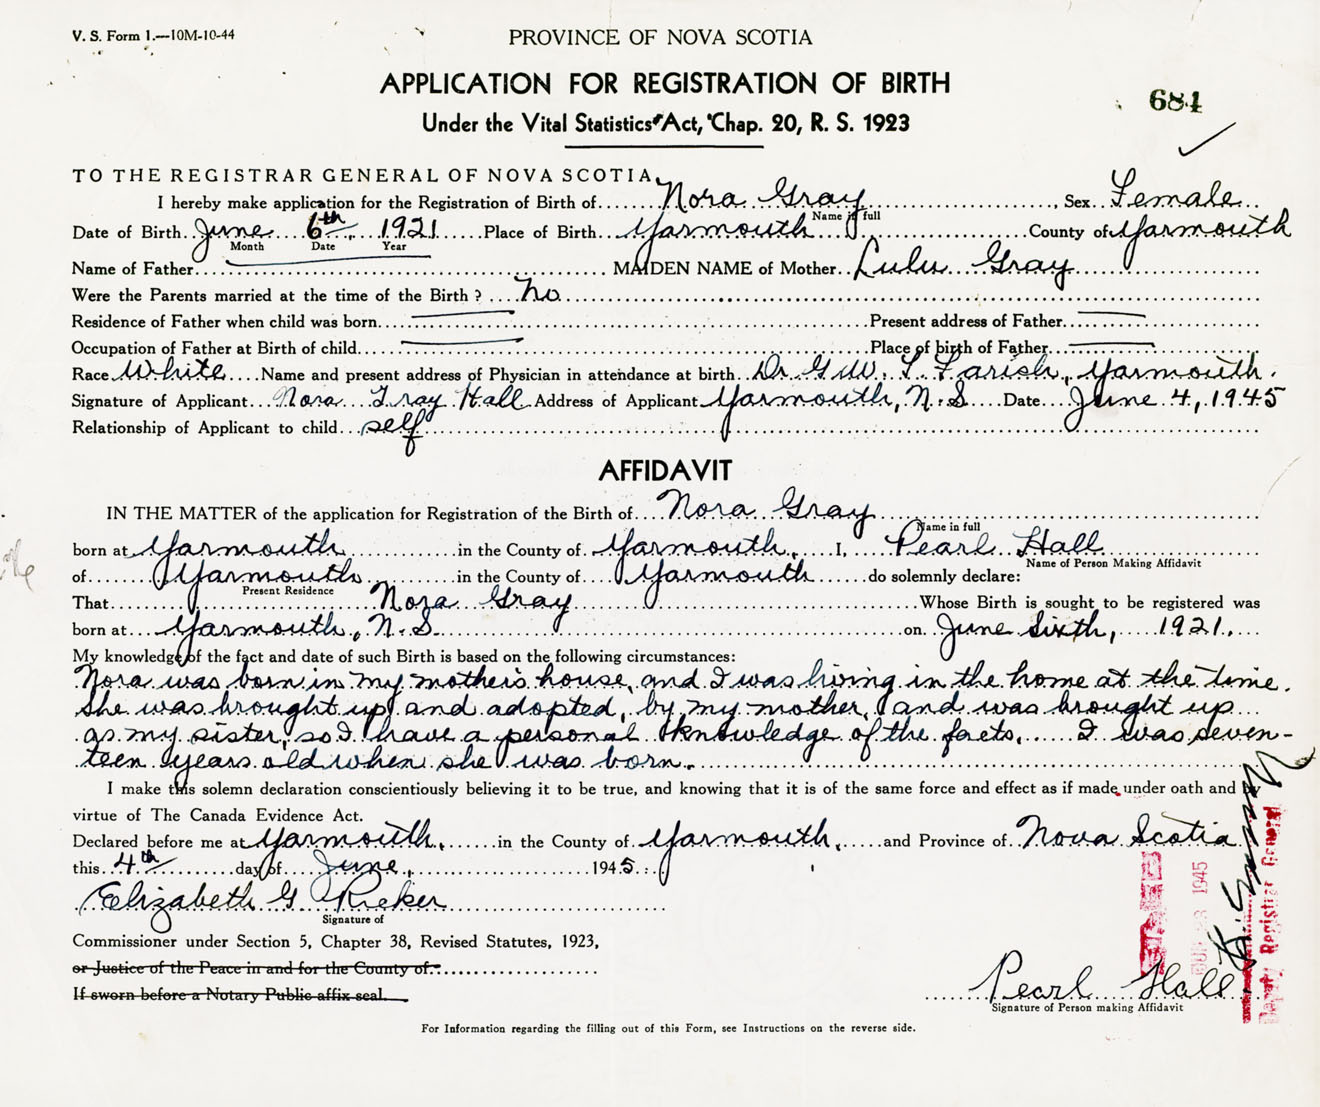 V. S. Form 1.—10M-10-44
PROVINCE OF NOVA SCOTIA
APPLICATION FOR REGISTRATION OF BIRTH
684
Under the Vital Statistics Act, Chap. 20, R. S. 1923
TO THE REGISTRAR GENERAL OF NOVA SCOTIA,
I hereby make application for the Registration of Birth of Nora Gray, Sex Female
Name in full
Date of Birth June 6th, 1921 Place of Birth Yarmouth County of Yarmouth
Month Date Year
Name of Father MAIDEN NAME of Mother Lulu Gray
Were the Parents married at the time of the Birth? No
Residence of Father when child was born Present address of Father
Occupation of Father at Birth of child Place of birth of Father
Race White Name and present address of Physician in attendance at birth Dr G.W. T. Farish, Yarmouth.
Signature of Applicant Nora Gray Hall Address of Applicant Yarmouth, N.S. Date June 4, 1945
Relationship of Applicant to child self
AFFIDAVIT
IN THE MATTER of the application for Registration of the Birth of Nora Gray
Name in full
born at Yarmouth in the County of Yarmouth, I, Pearl Hall
Name of Person Making Affidavit
of Yarmouth in the County of Yarmouth do solemnly declare:
Present Residence
That Nora Gray Whose Birth is sought to be registered was
born at Yarmouth, N.S. on June Sixth, 1921.
My knowledge of the fact and date of such Birth is based on the following circumstances:
Nora was born in my mother's house, and I was living in the home at the time.
She was brought up and adopted, by my mother, and was brought up
as my sister, so I have a personal knowledge of the facts, I was seven-
teen years old when she was born.
I make this solemn declaration conscientiously believing it to be true, and knowing that it is of the same force and effect as if made under oath and by
virtue of The Canada Evidence Act.
Declared before me at Yarmouth, in the County of Yarmouth, and Province of Nova Scotia
this 4th day of June, 1945.
Elizabeth G
Signature of
Commissioner under Section 5, Chapter 38, Revised Statutes, 1923,
or Justice of the Peace in and for the County of
If sworn before a Notary Public affix seal.
Pearl Hall
Signature of Person making Affidavit
1945
Deputy Registrar General
For Information regarding the filling out of this Form, see Instructions on the reverse side.